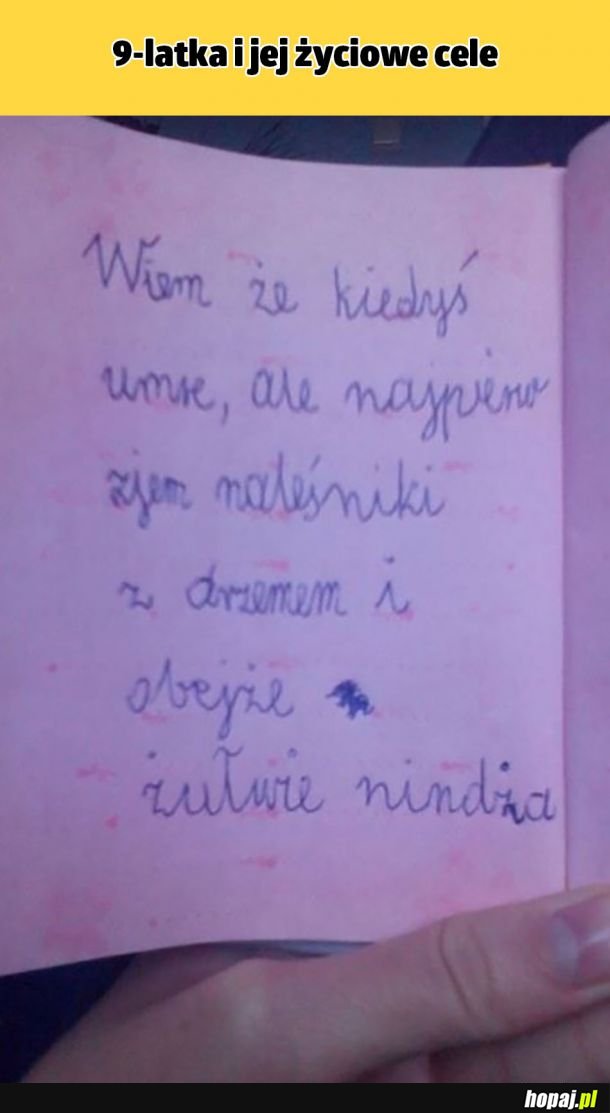 9-latka i jej życiowe cele
Wiem że kiedyś
umre, ale najpierw
zjem naleśniki
z drzemem i
obejże
żułwie nindża
hopaj.pl